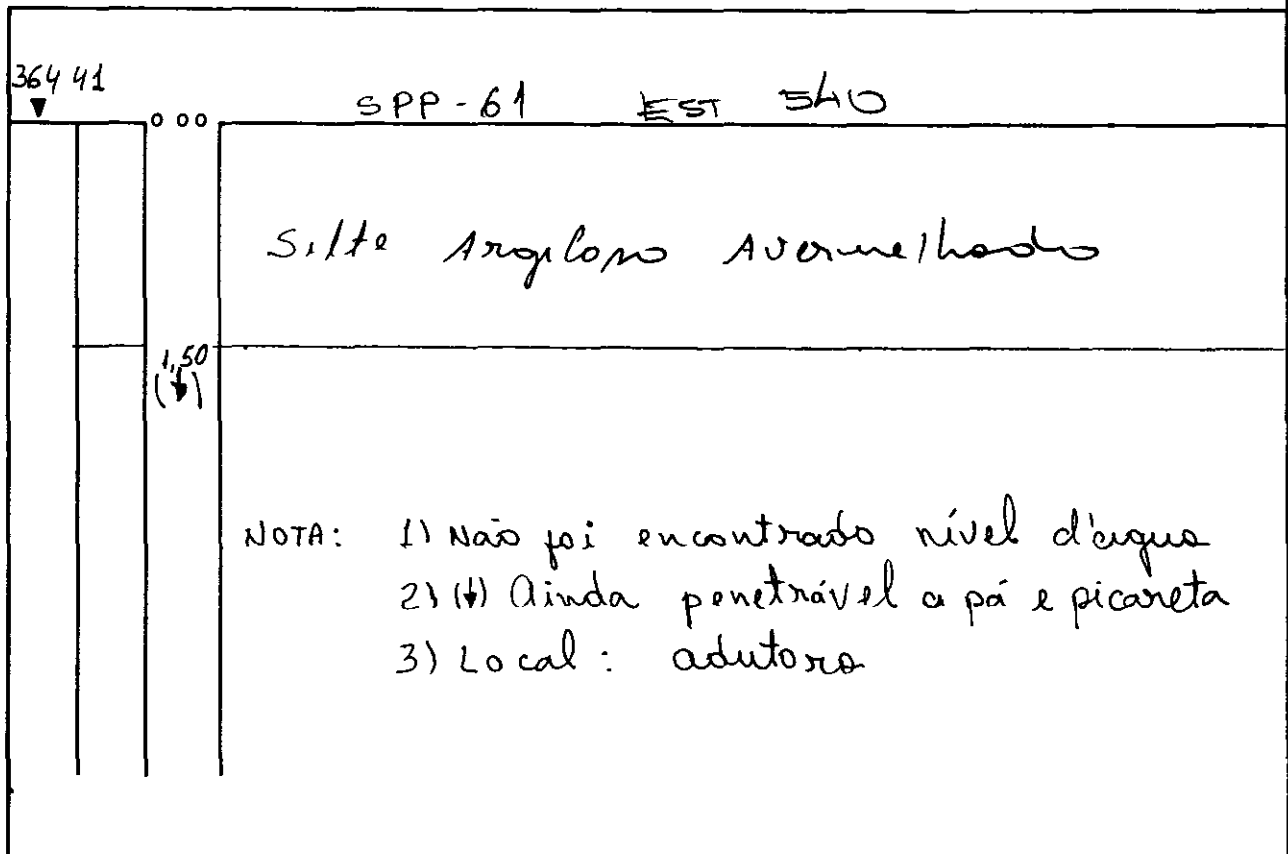 364 41
SPP-61 EST 540
0 00
Silte Argiloso Avermelhado
1,50
(↓)
NOTA: 1) Não foi encontrado nível d'água
2) (↓) Ainda penetrável a pá e picareta
3) Local: adutora